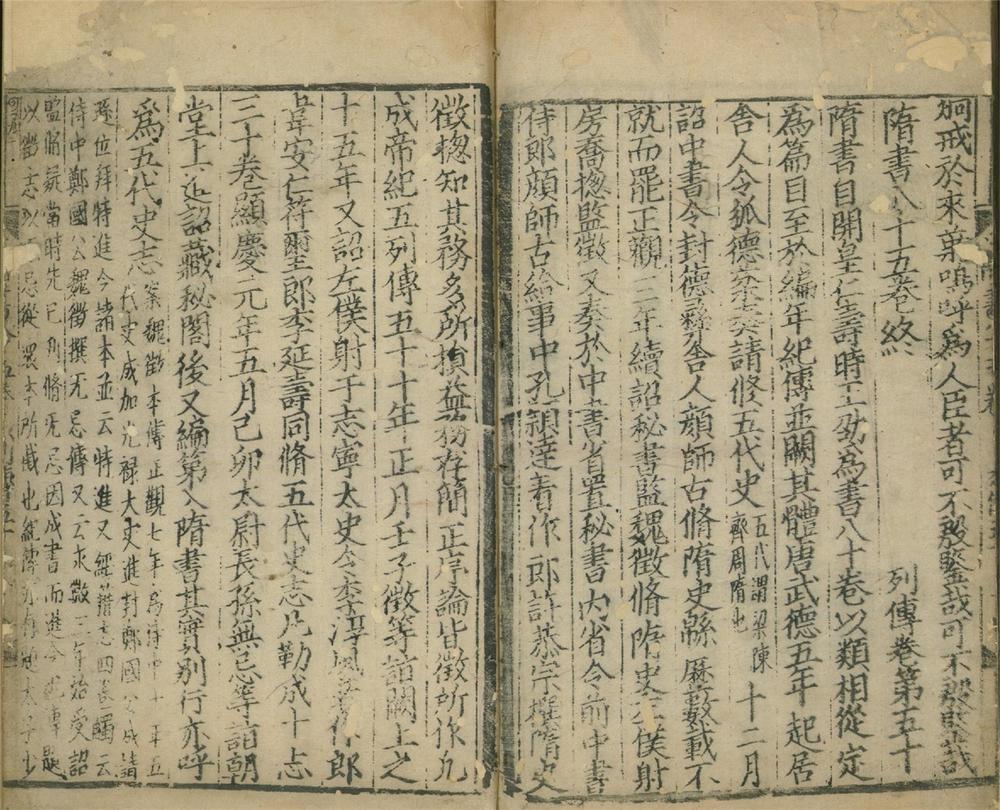 炯戒於來葉嗚呼為人臣者可不殷鑒哉可不殷鑒哉
隋書八十五卷終
列傳卷第五十
隋書自開皇仁壽時王劭為書八十卷以類相從定
為篇目至於編年紀傳並闕其體唐武德五年起居
舍人令狐德棻奏請脩五代史
五代謂梁陳
齊周隋也
十二月
詔中書令封德彝舍人顏師古脩隋史緜歷數載不
就而罷正觀三年續詔秘書監魏徵脩隋史左僕射
房喬揔監徵又奏於中書省置秘書內省令前中書
侍郎顏師古給事中孔穎達著作郎許恭宗撰隋史
徵揔知其務多所損益務存簡正序論皆徵所作凡
成帝紀五列傳五十十年正月壬子徵等詣闕上之
十五年又詔左僕射于志寧太史令李淳風著作郎
韋安仁符璽郎李延壽同脩五代史志凡勒成十志
三十卷顯慶元年五月己卯太尉長孫無忌等詣朝
堂上進詔藏秘閣後又編第入隋書其實別行亦呼
為五代史志
案魏徵本傳正觀七年為侍中十年五
代史成加光祿大夫進封鄭國公成請
孫位拜特進今諸本並云特進又經籍志四卷獨云
侍中鄭國公魏徵撰无忌傳又云永徽三年始受詔
監脩疑當時先已刊脩无忌因成書而進今